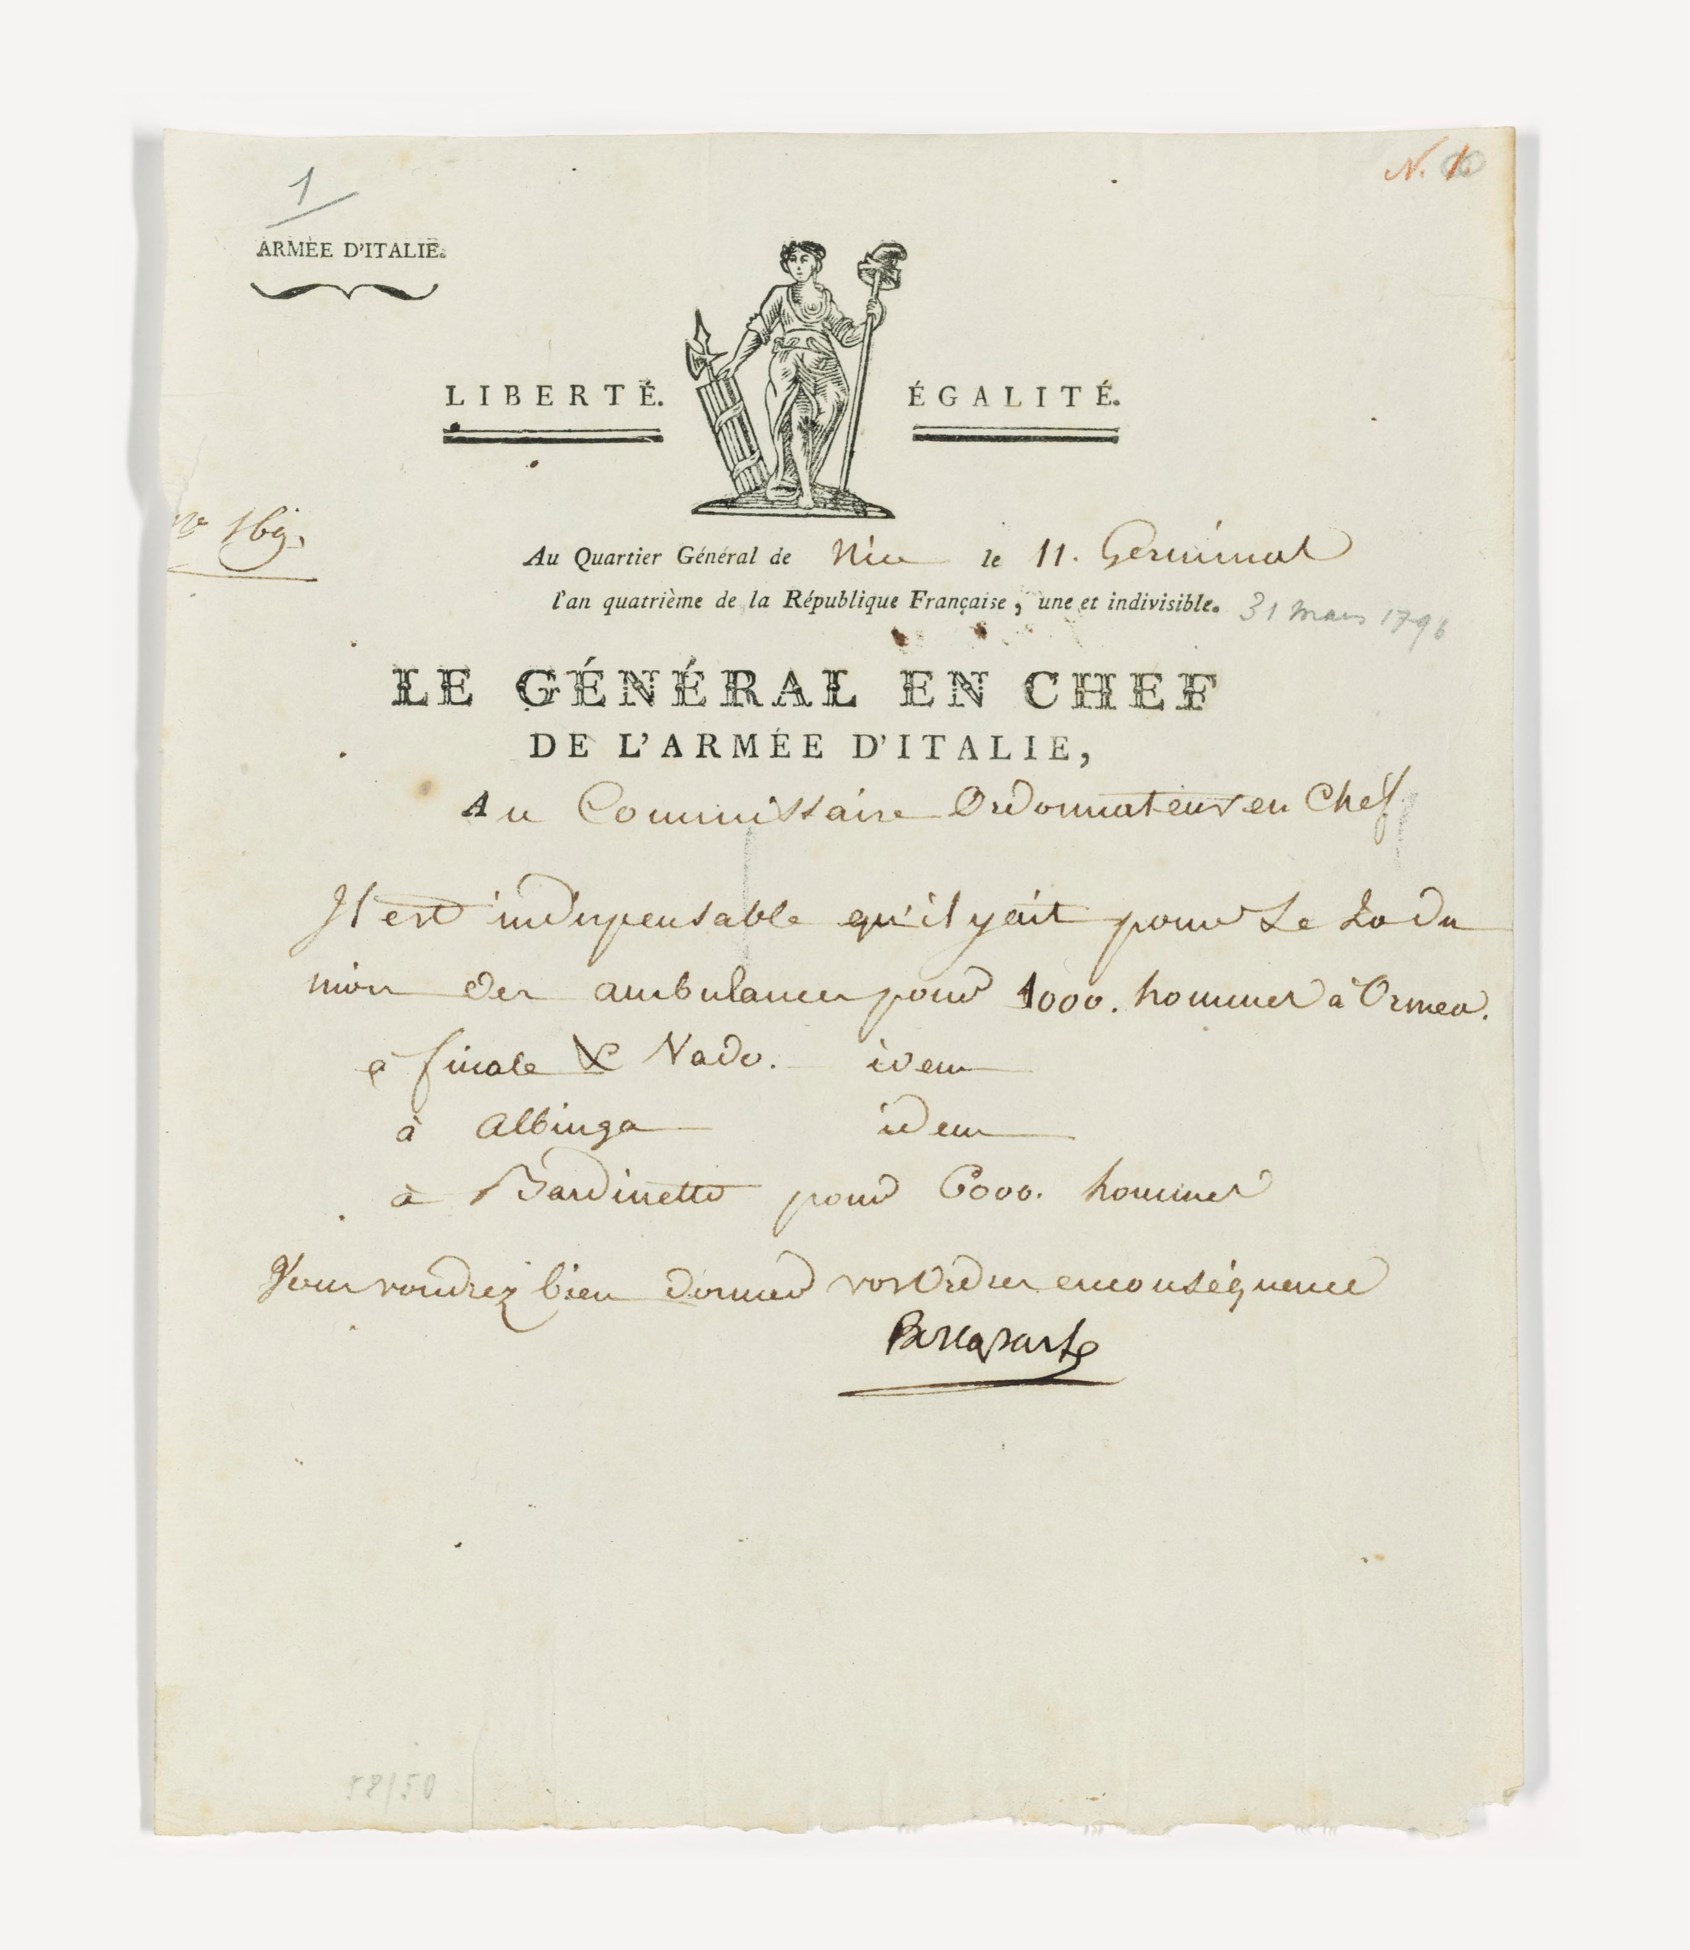 1
N. 1.
ARMÉE D'ITALIE.
LIBERTÉ. ÉGALITÉ.
nº 169.
Au Quartier Général de Nice le 11. Germinal
l'an quatrième de la République Française, une et indivisible. 31 mars 1796
LE GÉNÉRAL EN CHEF
DE L'ARMÉE D'ITALIE,
Au Commissaire Ordonnateur en Chef
Il est indispensable qu'il y ait pour Le 20 du
mois des ambulances pour 1000. hommes à Ormea.
à finale & Vado. idem
à Albinga idem
à Bardinetto pour 6000. hommes
Vous voudrez bien donner vos Ordres en conséquence
Bonaparte
58/50